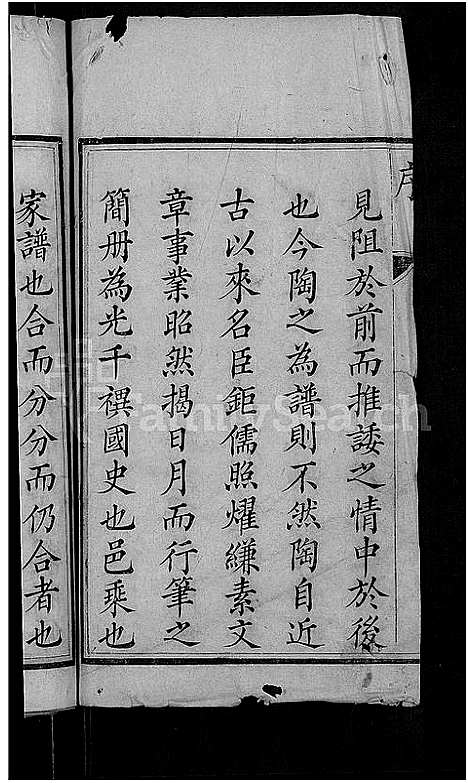 序
見阻於前而推諉之情中於後
也今陶之為譜則不然陶自近
古以來名臣鉅儒照燿縑素文
章事業昭然揭日月而行筆之
簡册為光千禩國史也邑乘也
家譜也合而分分而仍合者也
FamilySearch